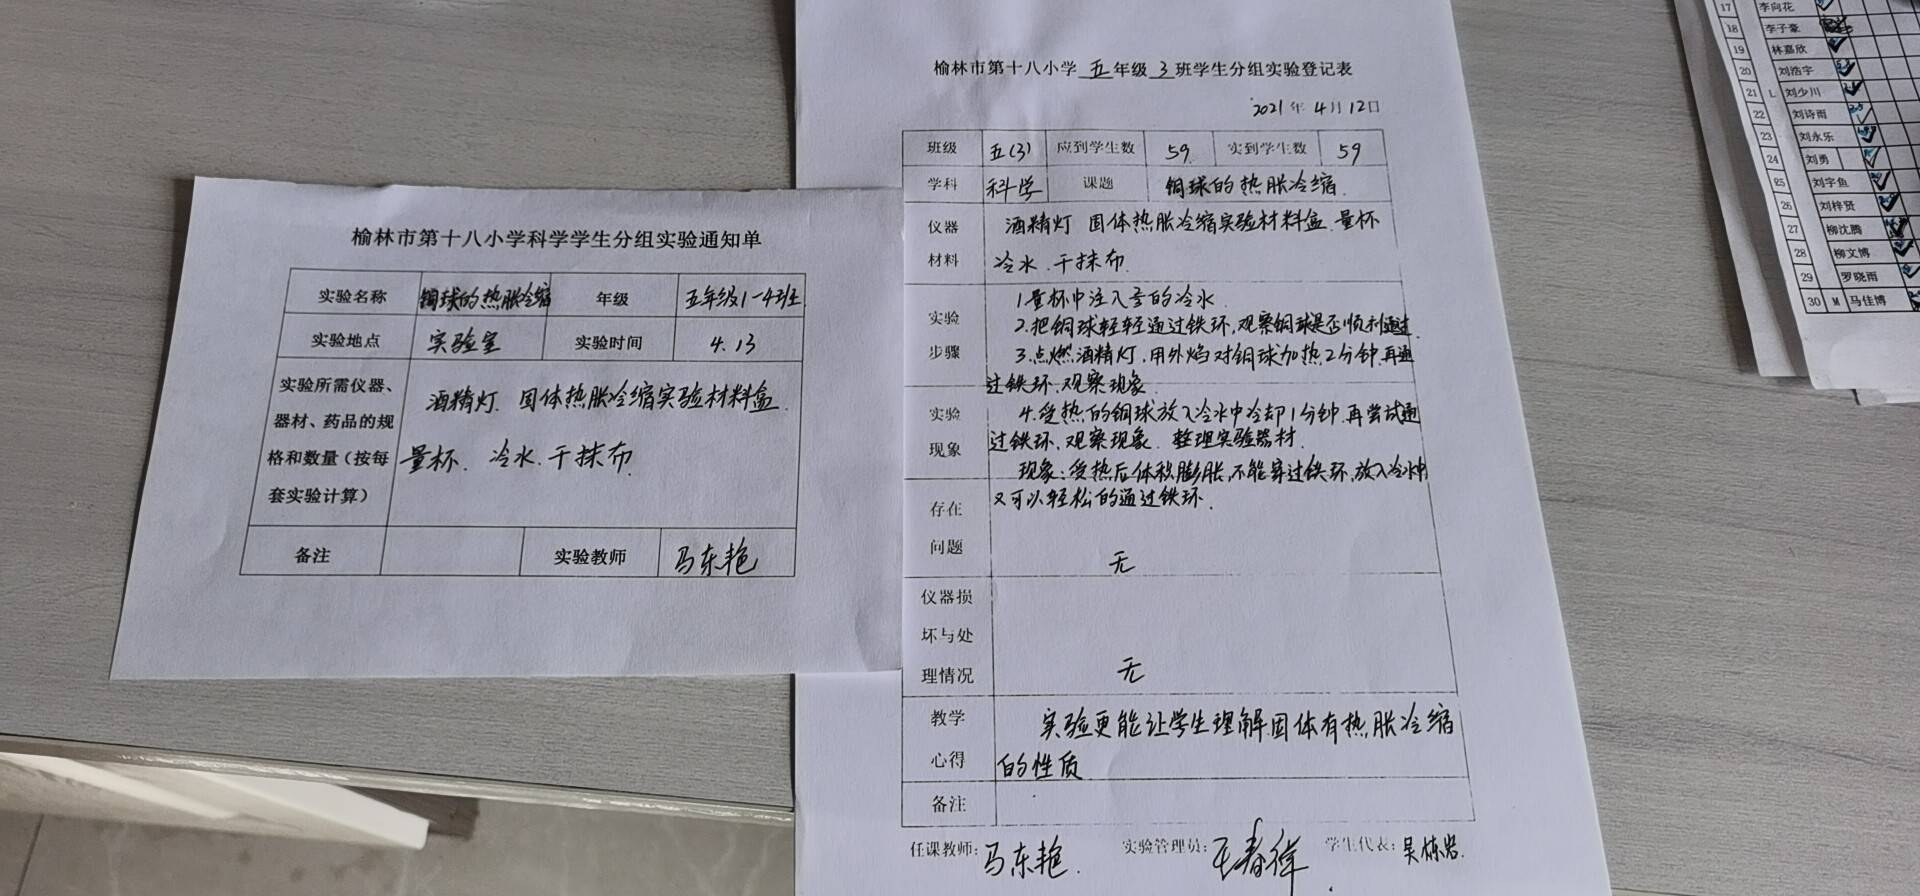 榆林市第十八小学科学学生分组实验通知单
实验名称 铜球的热胀冷缩 年级 五年级1-4班
实验地点 实验室 实验时间 4.13
实验所需仪器、器材、药品的规格和数量（按每套实验计算）
酒精灯 固体热胀冷缩实验材料盒
量杯. 冷水.干抹布
备注 实验教师 马东艳
榆林市第十八小学 五 年级 3 班学生分组实验登记表
2021 年 4 月 12 日
班级 五(3) 应到学生数 59 实到学生数 59
学科 科学 课题 铜球的热胀冷缩.
仪器材料
酒精灯 固体热胀冷缩实验材料盒 量杯
冷水.干抹布.
实验步骤
1量杯中注入 的冷水
2.把铜球轻轻通过铁环,观察铜球是否顺利通过.
3.点燃酒精灯.用外焰对铜球加热2分钟.再通
过铁环.观察现象.
实验现象
4.受热的铜球放入冷水中冷却1分钟.再尝试通
过铁环.观察现象. 整理实验器材.
现象:受热后体积膨胀,不能穿过铁环,放入冷水中
又可以轻松的通过铁环.
存在问题
无
仪器损坏与处理情况
无
教学心得
实验更能让学生理解固体有热胀冷缩
的性质
备注
任课教师: 马东艳. 实验管理员: 学生代表:
17 李向花
18 李子豪
19 林嘉欣
20 刘浩宇
21 L 刘少川
22 刘诗雨
23 刘永乐
24 刘勇
25 刘宇鱼
26 刘梓贤
27 柳沈腾
28 柳文博
29 罗晓雨
30 M 马佳博